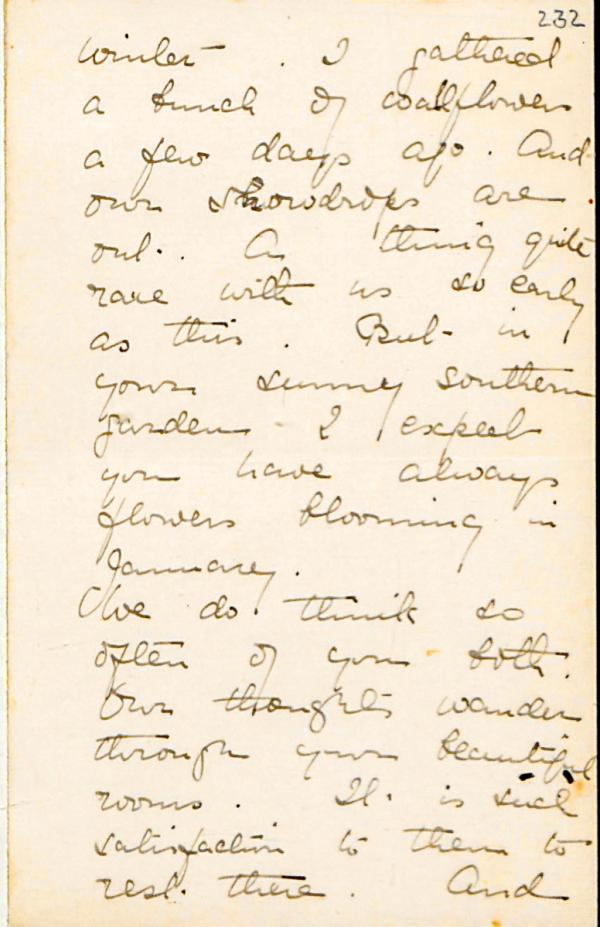 232
winter. I gathered
a bunch of wallflowers
a few days ago. And
own snowdrops are
out. A thing quite
rare with us so early
as this. But in
your sunny southern
garden I expect
you have always
flowers blooming in
January.
We do think so
often of you both.
Our thoughts wander
through your beautiful
rooms. It is such
satisfaction to them to
rest there. And